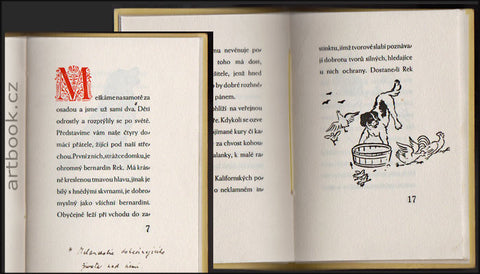 artbook.cz
Meškáme na samotě za
osadou a jsme už sami dva. Děti
odrostly a rozprýlily se po světě.
Představím vám naše čtyry do-
mácí přátele, žijící pod naší stře-
chou. První z nich, strážce domku, je
ohromný bernardin Rek. Má krás-
ně kreslenou tmavou hlavu, jinak je
bílý s hnědými skvrnami, je dobro-
myslný jako všichni bernardini.
Obyčejně leží při vchodu do za-
7
mu nevěnuje po-
toho má dost,
žitele, jenž hned
by dobré rozhně-
pánem.
hlíží na veřejnou
ře. Kdykoli se ozve
ijímané kury či ka-
za chvost kohou-
alanky, k malé ra-
Kalifornských po-
o neklamném in-
stinktu, jímž tvorové slabí poznáva-
jí dobrotu tvorů silných, hledajíce
u nich ochrany. Dostane-li Rek
17